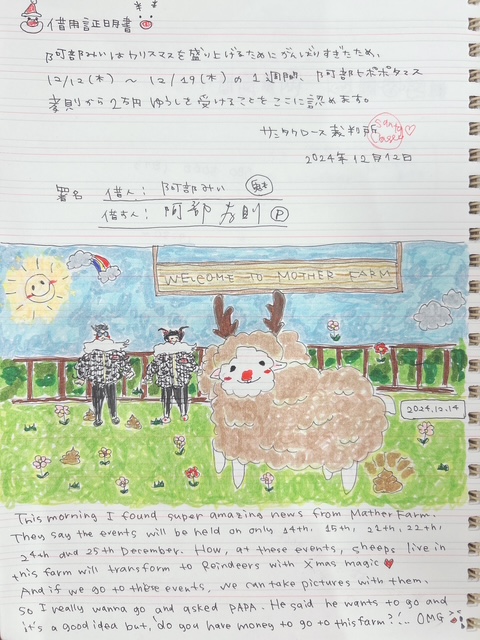 借用証明書
阿部みぃはクリスマスを盛り上げるためにがんばりすぎたため、
12/12(木) 〜 12/19(木)の1週間、阿部ヒポポタマス
から2万円 ゆうしを受けることをここに認めます。
サンタクロース裁判所
2024年12月12日
署名 借人: 阿部みぃ
借す人: 阿部 P
WELCOME TO MOTHER FARM
2024.12.14
This morning I found super amazing news from Mother Farm.
They say the events will be held on only 14th, 15th, 21th, 22th,
24th and 25th December. How, at these events, sheeps live in
this farm will transform to Reindeers with X'mas magic♥
And if we go to these events, we can take pictures with them.
So I really wanna go and asked PAPA. He said he wants to go and
it's a good idea but, do you have money to go to this farm? OMG